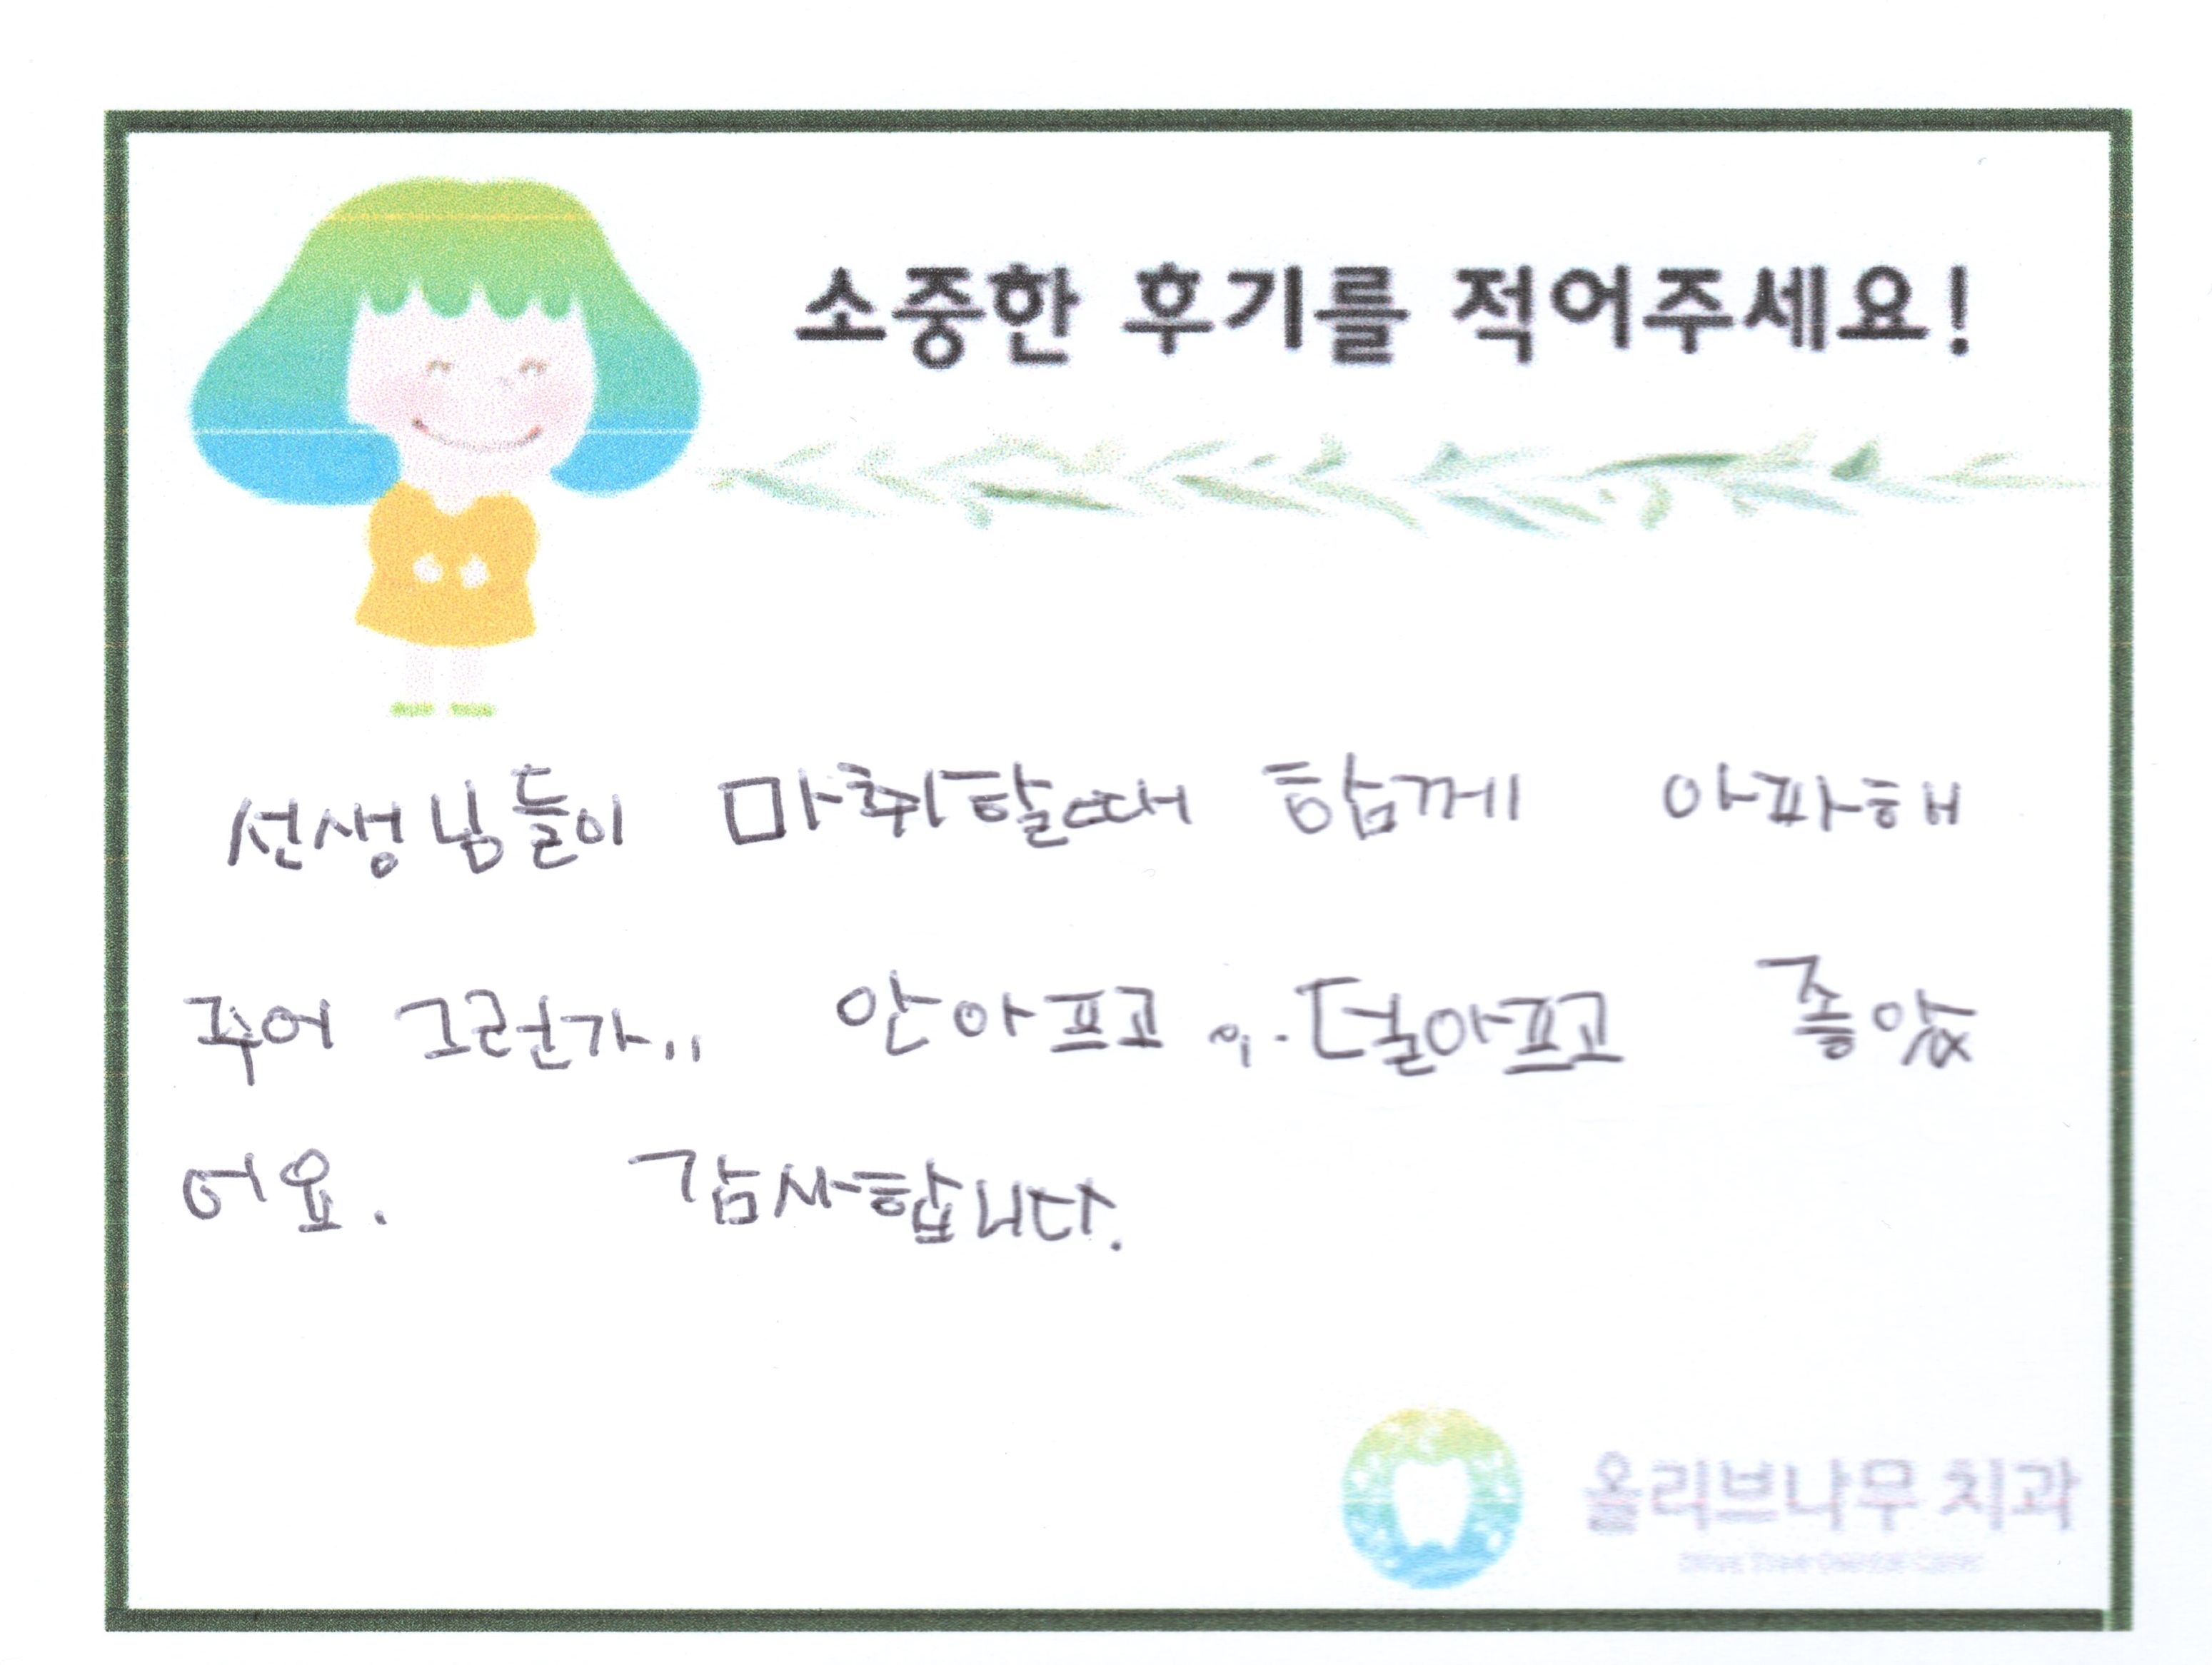 소중한 후기를 적어주세요!
선생님들이 마취할때 함께 아파해
주어 그런가.. 안아프고 아.. 덜아프고 좋았
어요. 감사합니다.
올리브나무 치과
Olive Tree Dental Clinic